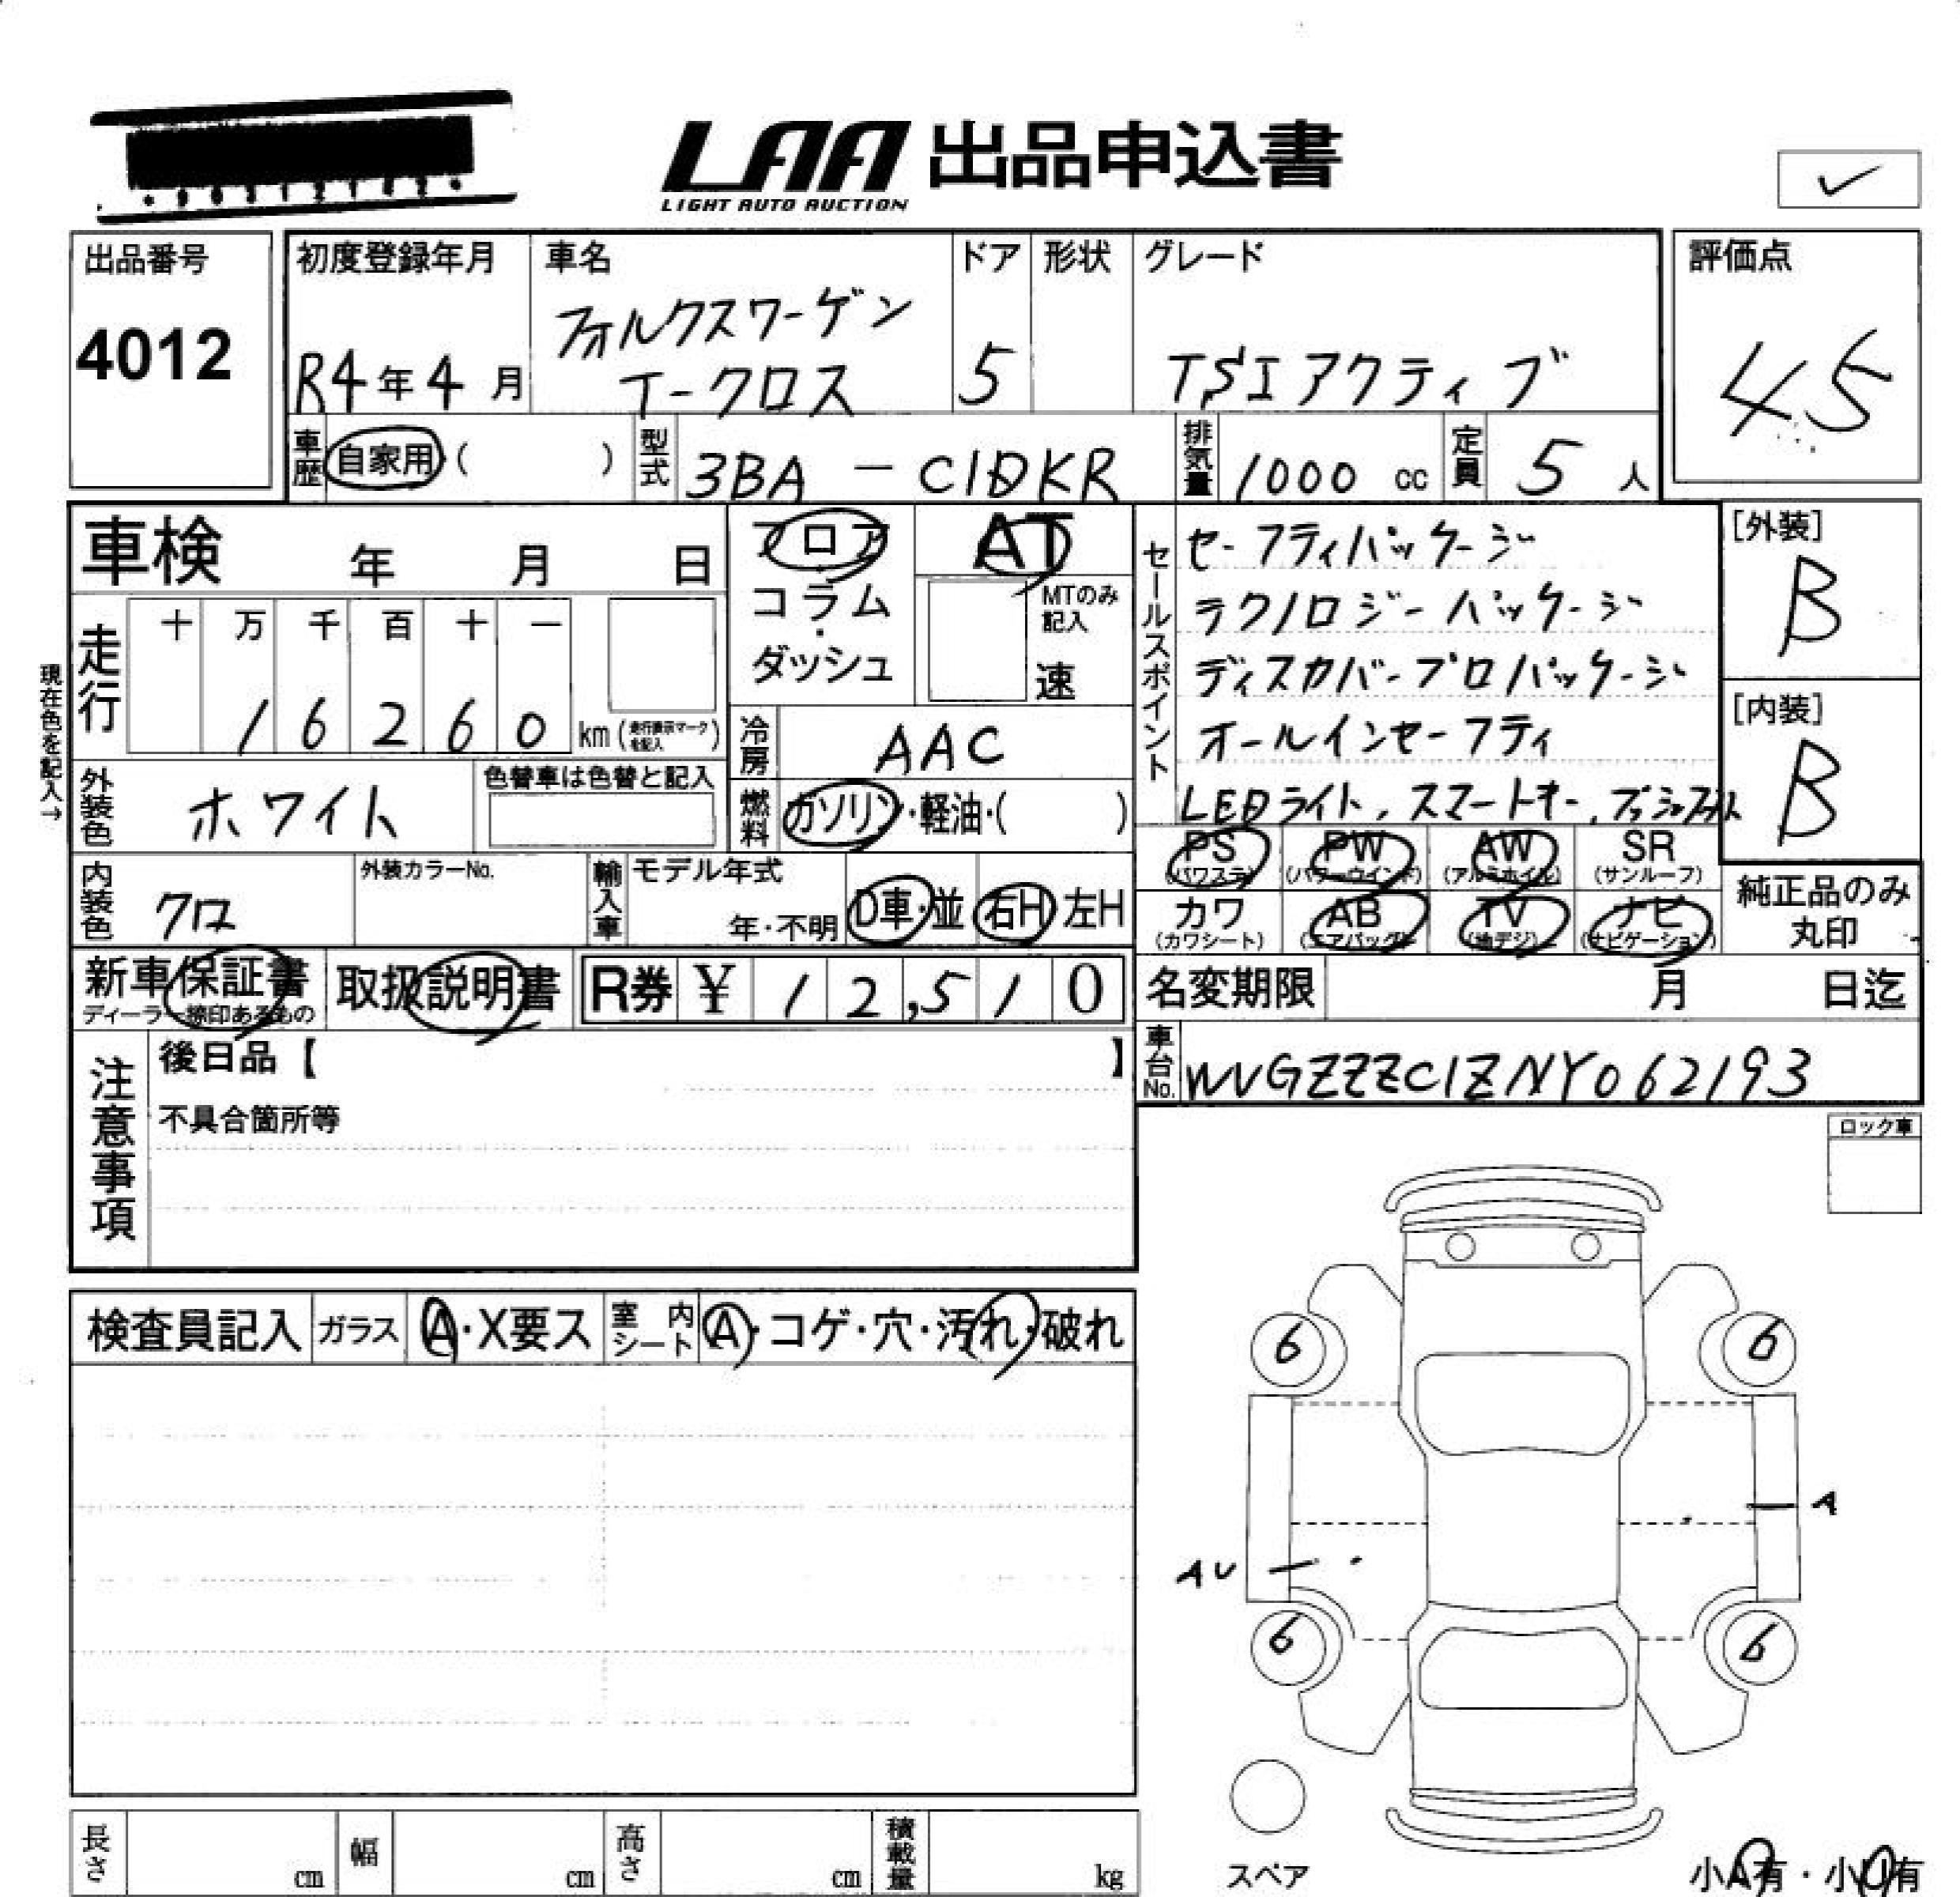 LAA 出品申込書
LIGHT AUTO AUCTION
出品番号
4012
初度登録年月
R4年4月
車名
フォルクスワーゲン
T-クロス
ドア
5
形状
グレード
TSI アクティブ
評価点
4.5
車歴 自家用 ( )
型式 3BA - C1DKR
排気量 1000 cc
定員 5 人
車検 年 月 日
フロア・
コラム・
ダッシュ
AT
MTのみ記入
速
走行
十 万 千 百 十 一
1 6 2 6 0 km (走行表示マークを記入)
現在色を記入→
冷房 AAC
外装色 ホワイト
色替車は色替と記入
燃料 ガソリン・軽油・( )
セールスポイント
セーフティパッケージ
テクノロジーパッケージ
ディスカバープロパッケージ
オールインセーフティ
LEDライト、スマートキー、
[外装]
B
[内装]
B
PS (パワステ)
PW (パワーウインド)
AW (アルミホイル)
SR (サンルーフ)
カワ (カワシート)
AB (エアバッグ)
TV (地デジ)
ナビ (ナビゲーション)
純正品のみ
丸印
内装色 クロ
外装カラーNo.
輸入車
モデル年式
年・不明
D車・並
右H 左H
新車保証書
ディーラー捺印あるもの
取扱説明書
R券 ¥ 12,510
名変期限 月 日迄
車台No. WVGZZZC1ZNY062193
注意事項
後日品【 】
不具合箇所等
ロック車
検査員記入
ガラス A・X要ス
室内シート A・コゲ・穴・汚れ・破れ
6 6
A
AU
6 6
スペア
小A有・小U有
長さ cm
幅 cm
高さ cm
積載量 kg